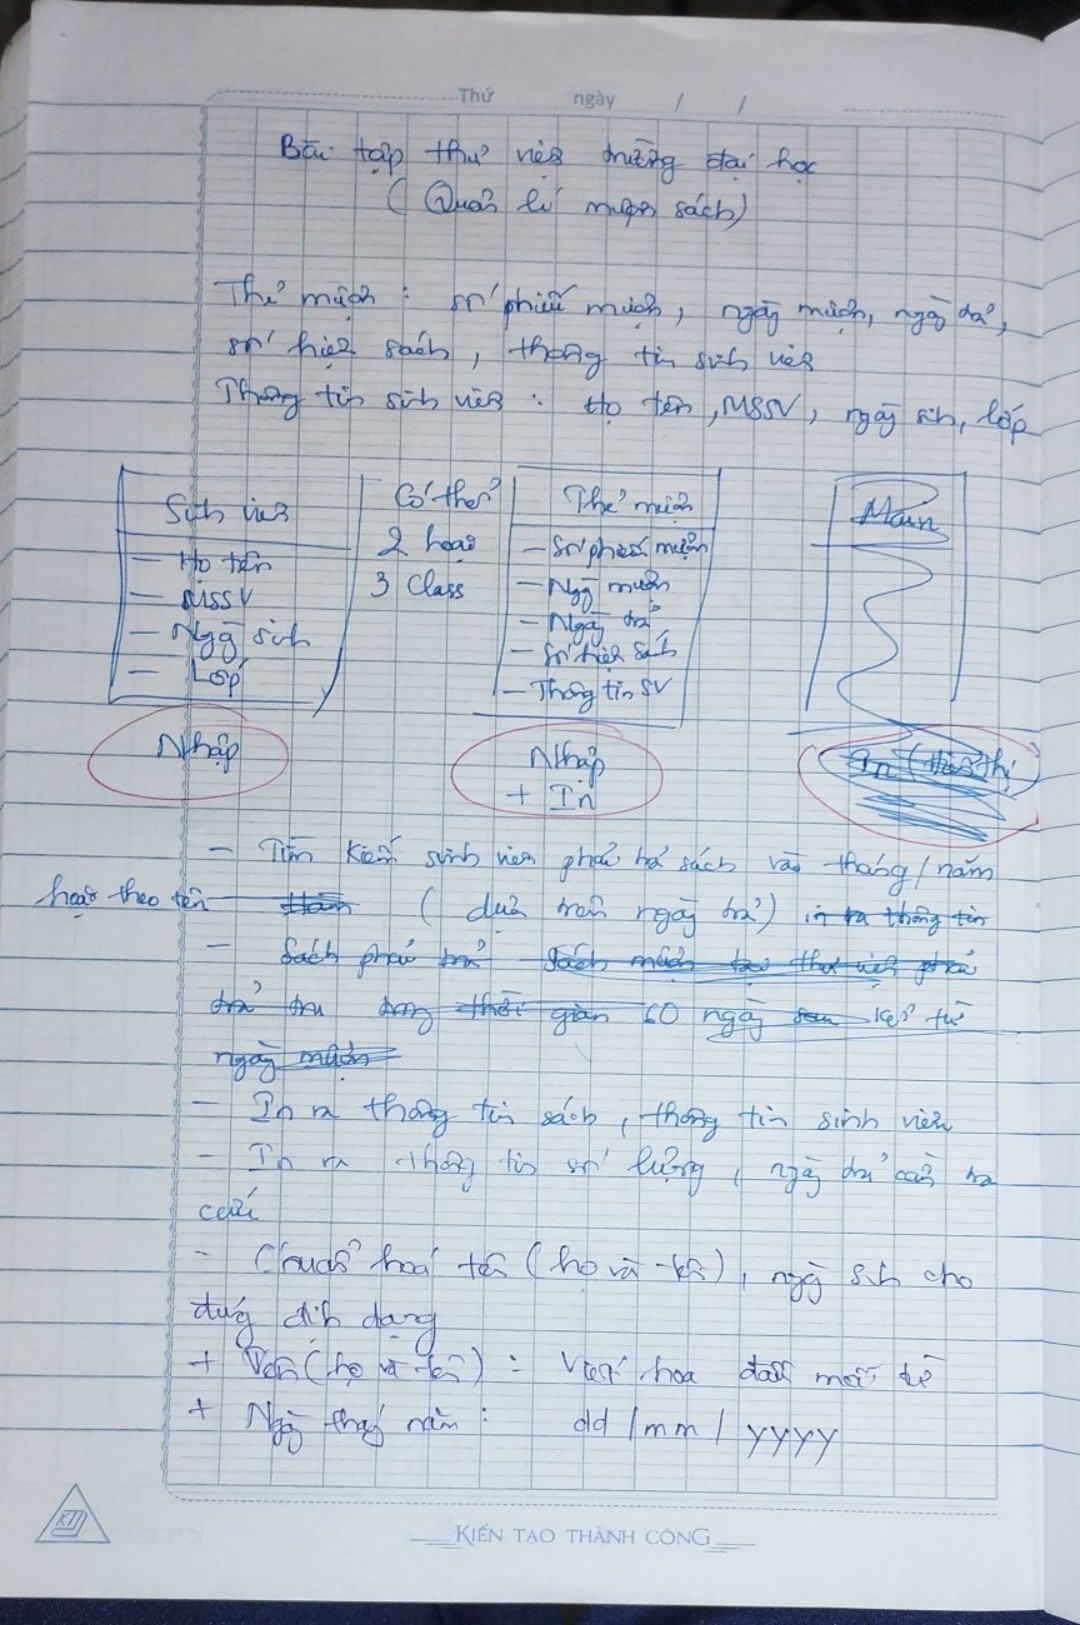 Thứ ngày / /
Bài tập thư viện trường đại học
(Quản lí mượn sách)
Thẻ mượn : số phiếu mượn, ngày mượn, ngày trả,
số hiệu sách, thông tin sinh viên
Thông tin sinh viên : Họ tên, MSSV, ngày sinh, lớp
Sinh viên
- Họ tên
- MSSV
- Ngày sinh
- Lớp
Có thể
2 hoặc
3 Class
Thẻ mượn
- Số phiếu mượn
- Ngày mượn
- Ngày trả
- Số hiệu sách
- Thông tin SV
Main
Nhập
Nhập
+ In
In (hiển thị
- Tìm kiếm sinh viên phải trả sách vào tháng/năm
hoặc theo tên (dựa trên ngày trả) in ra thông tin
- Sách phải trả sách mượn tại thư viện phải
trả trong thời gian 60 ngày sau kể từ
ngày mượn
- In ra thông tin sách, thông tin sinh viên
- In ra thông tin số lượng, ngày trả cần tra
cứu
- Chuẩn hoá tên (họ và tên), ngày sinh cho
đúng định dạng
+ Tên (họ và tên) : Viết hoa đầu mỗi từ
+ Ngày tháng năm : dd/mm/yyyy
KT
KIẾN TẠO THÀNH CÔNG